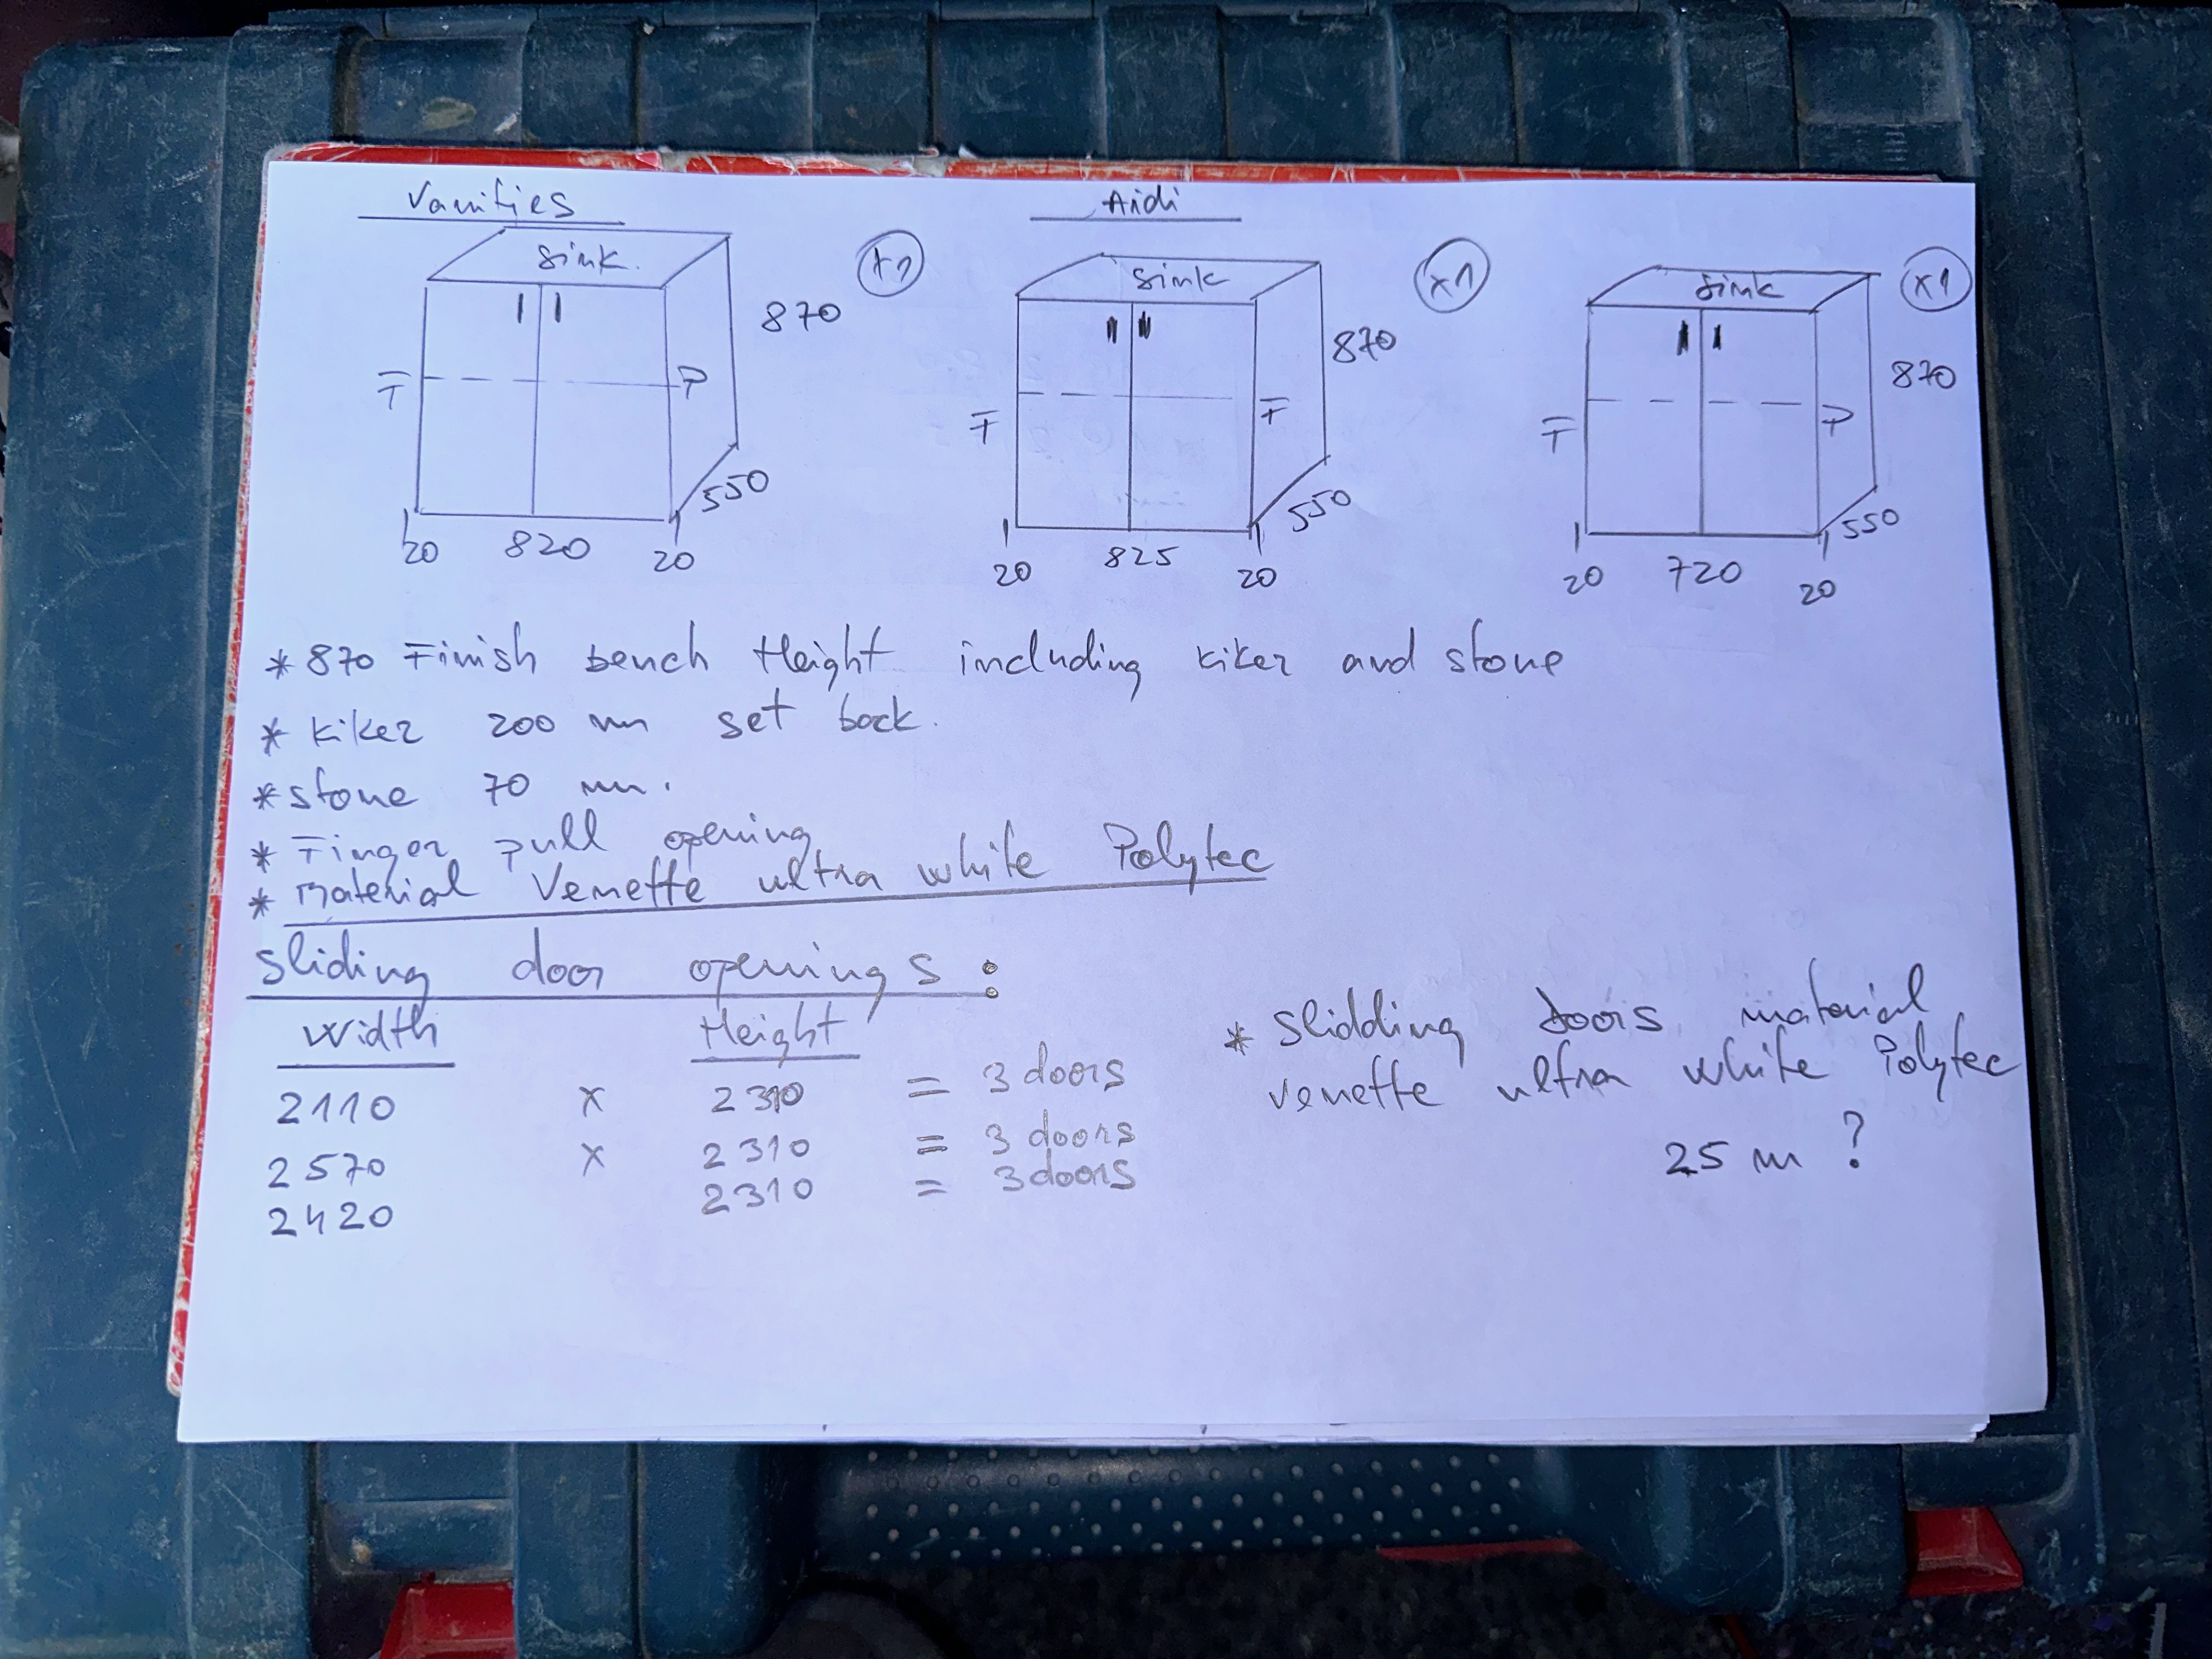 Vanities
Aidi
sink.
x1
870
F
P
550
20 820 20
sink
x1
870
F
F
550
20 825 20
sink
x1
870
F
P
550
20 720 20
* 870 Finish bench Height including kiker and stone
* kiker 200 mm set back.
* stone 70 mm.
* Finger pull opening
* Material Venette ultra white Polytec
sliding door openings:
Width Height
2110 x 2310 = 3 doors
2570 x 2310 = 3 doors
2420 2310 = 3 doors
* Slidding doors material
venette ultra white Polytec
25 m ?